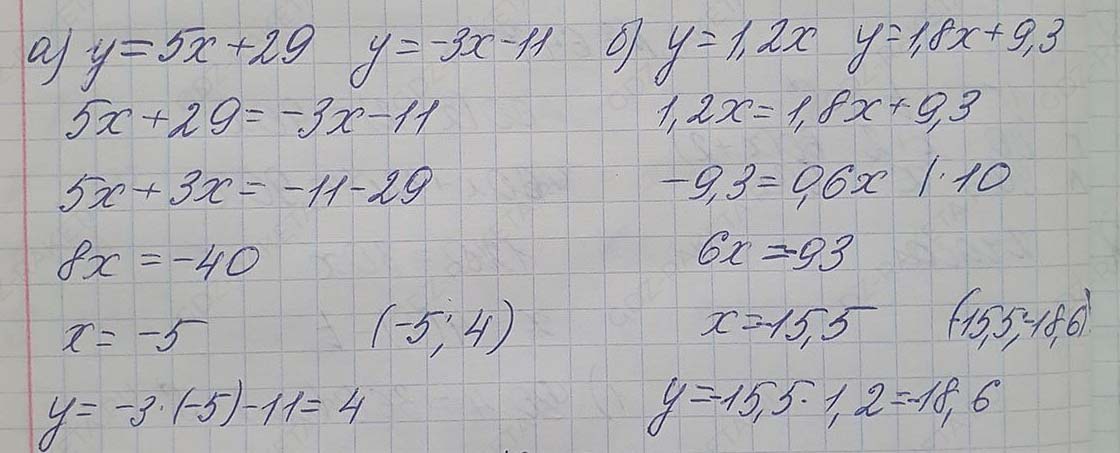 а) y = 5x + 29   y = -3x - 11
5x + 29 = -3x - 11
5x + 3x = -11 - 29
8x = -40
x = -5   (-5; 4)
y = -3 · (-5) - 11 = 4
б) y = 1,2x   y = 1,8x + 9,3
1,2x = 1,8x + 9,3
-9,3 = 0,6x   | · 10
6x = -93
x = -15,5   (-15,5; -18,6)
y = -15,5 · 1,2 = -18,6